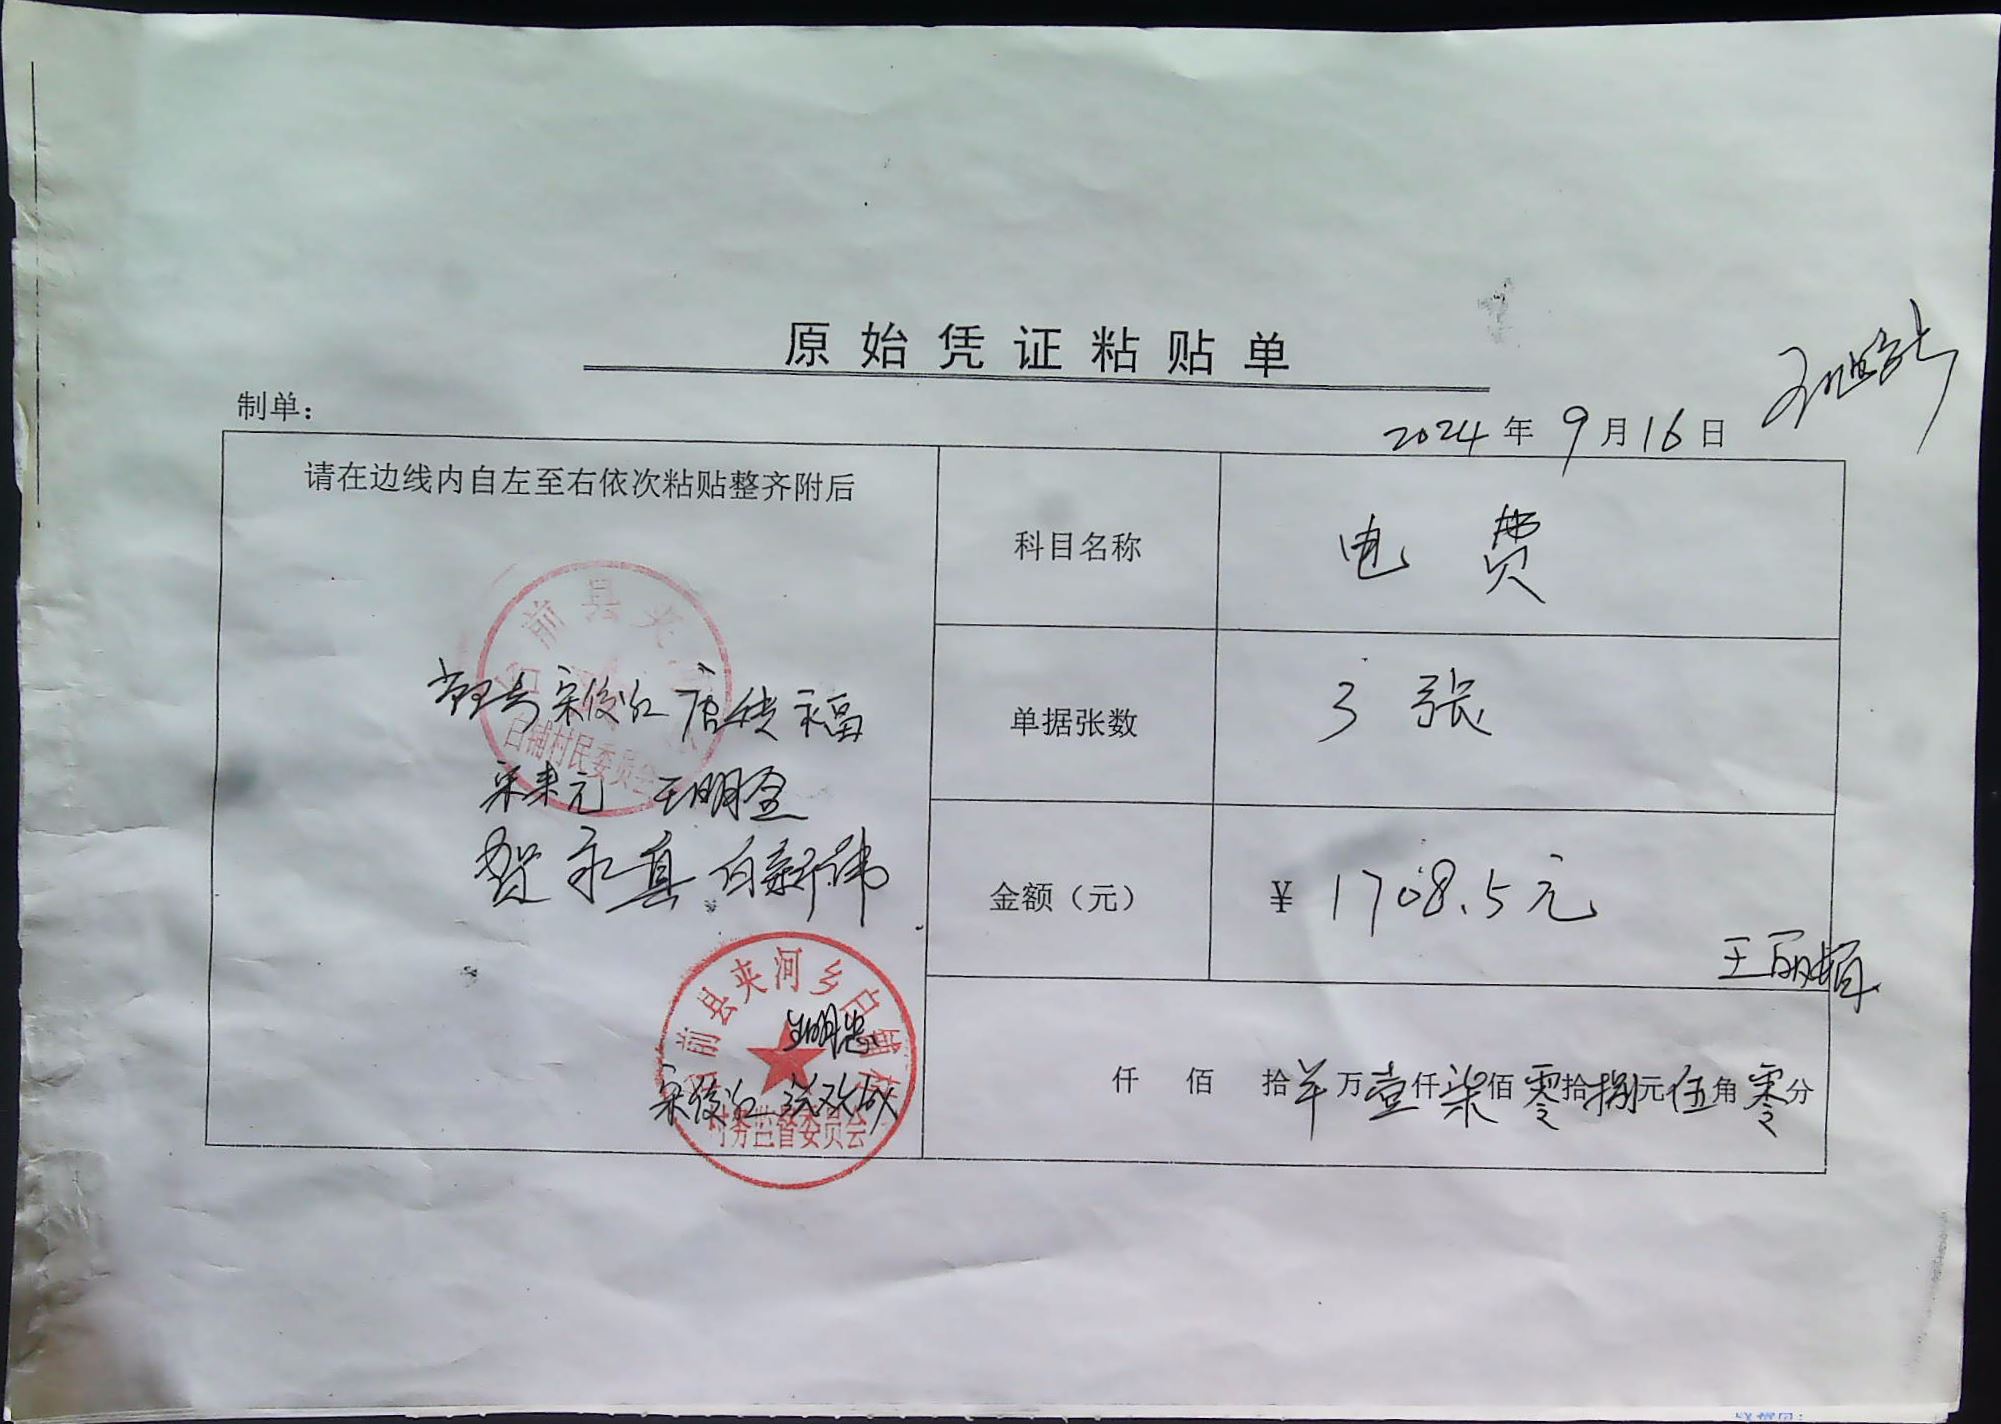 原始凭证粘贴单
制单：
2024年9月16日
请在边线内自左至右依次粘贴整齐附后
科目名称
电费
前县夹
宋俊江 唐传永福
白铺村民委员会
单据张数
3张
宋来元 王明金
贺永真 白新伟
金额（元）
¥1708.5元
王丽娟
前县夹河乡白铺村
王明忠
仟佰拾羊万壹仟柒佰零拾捌元伍角零分
宋俊江
村务监督委员会